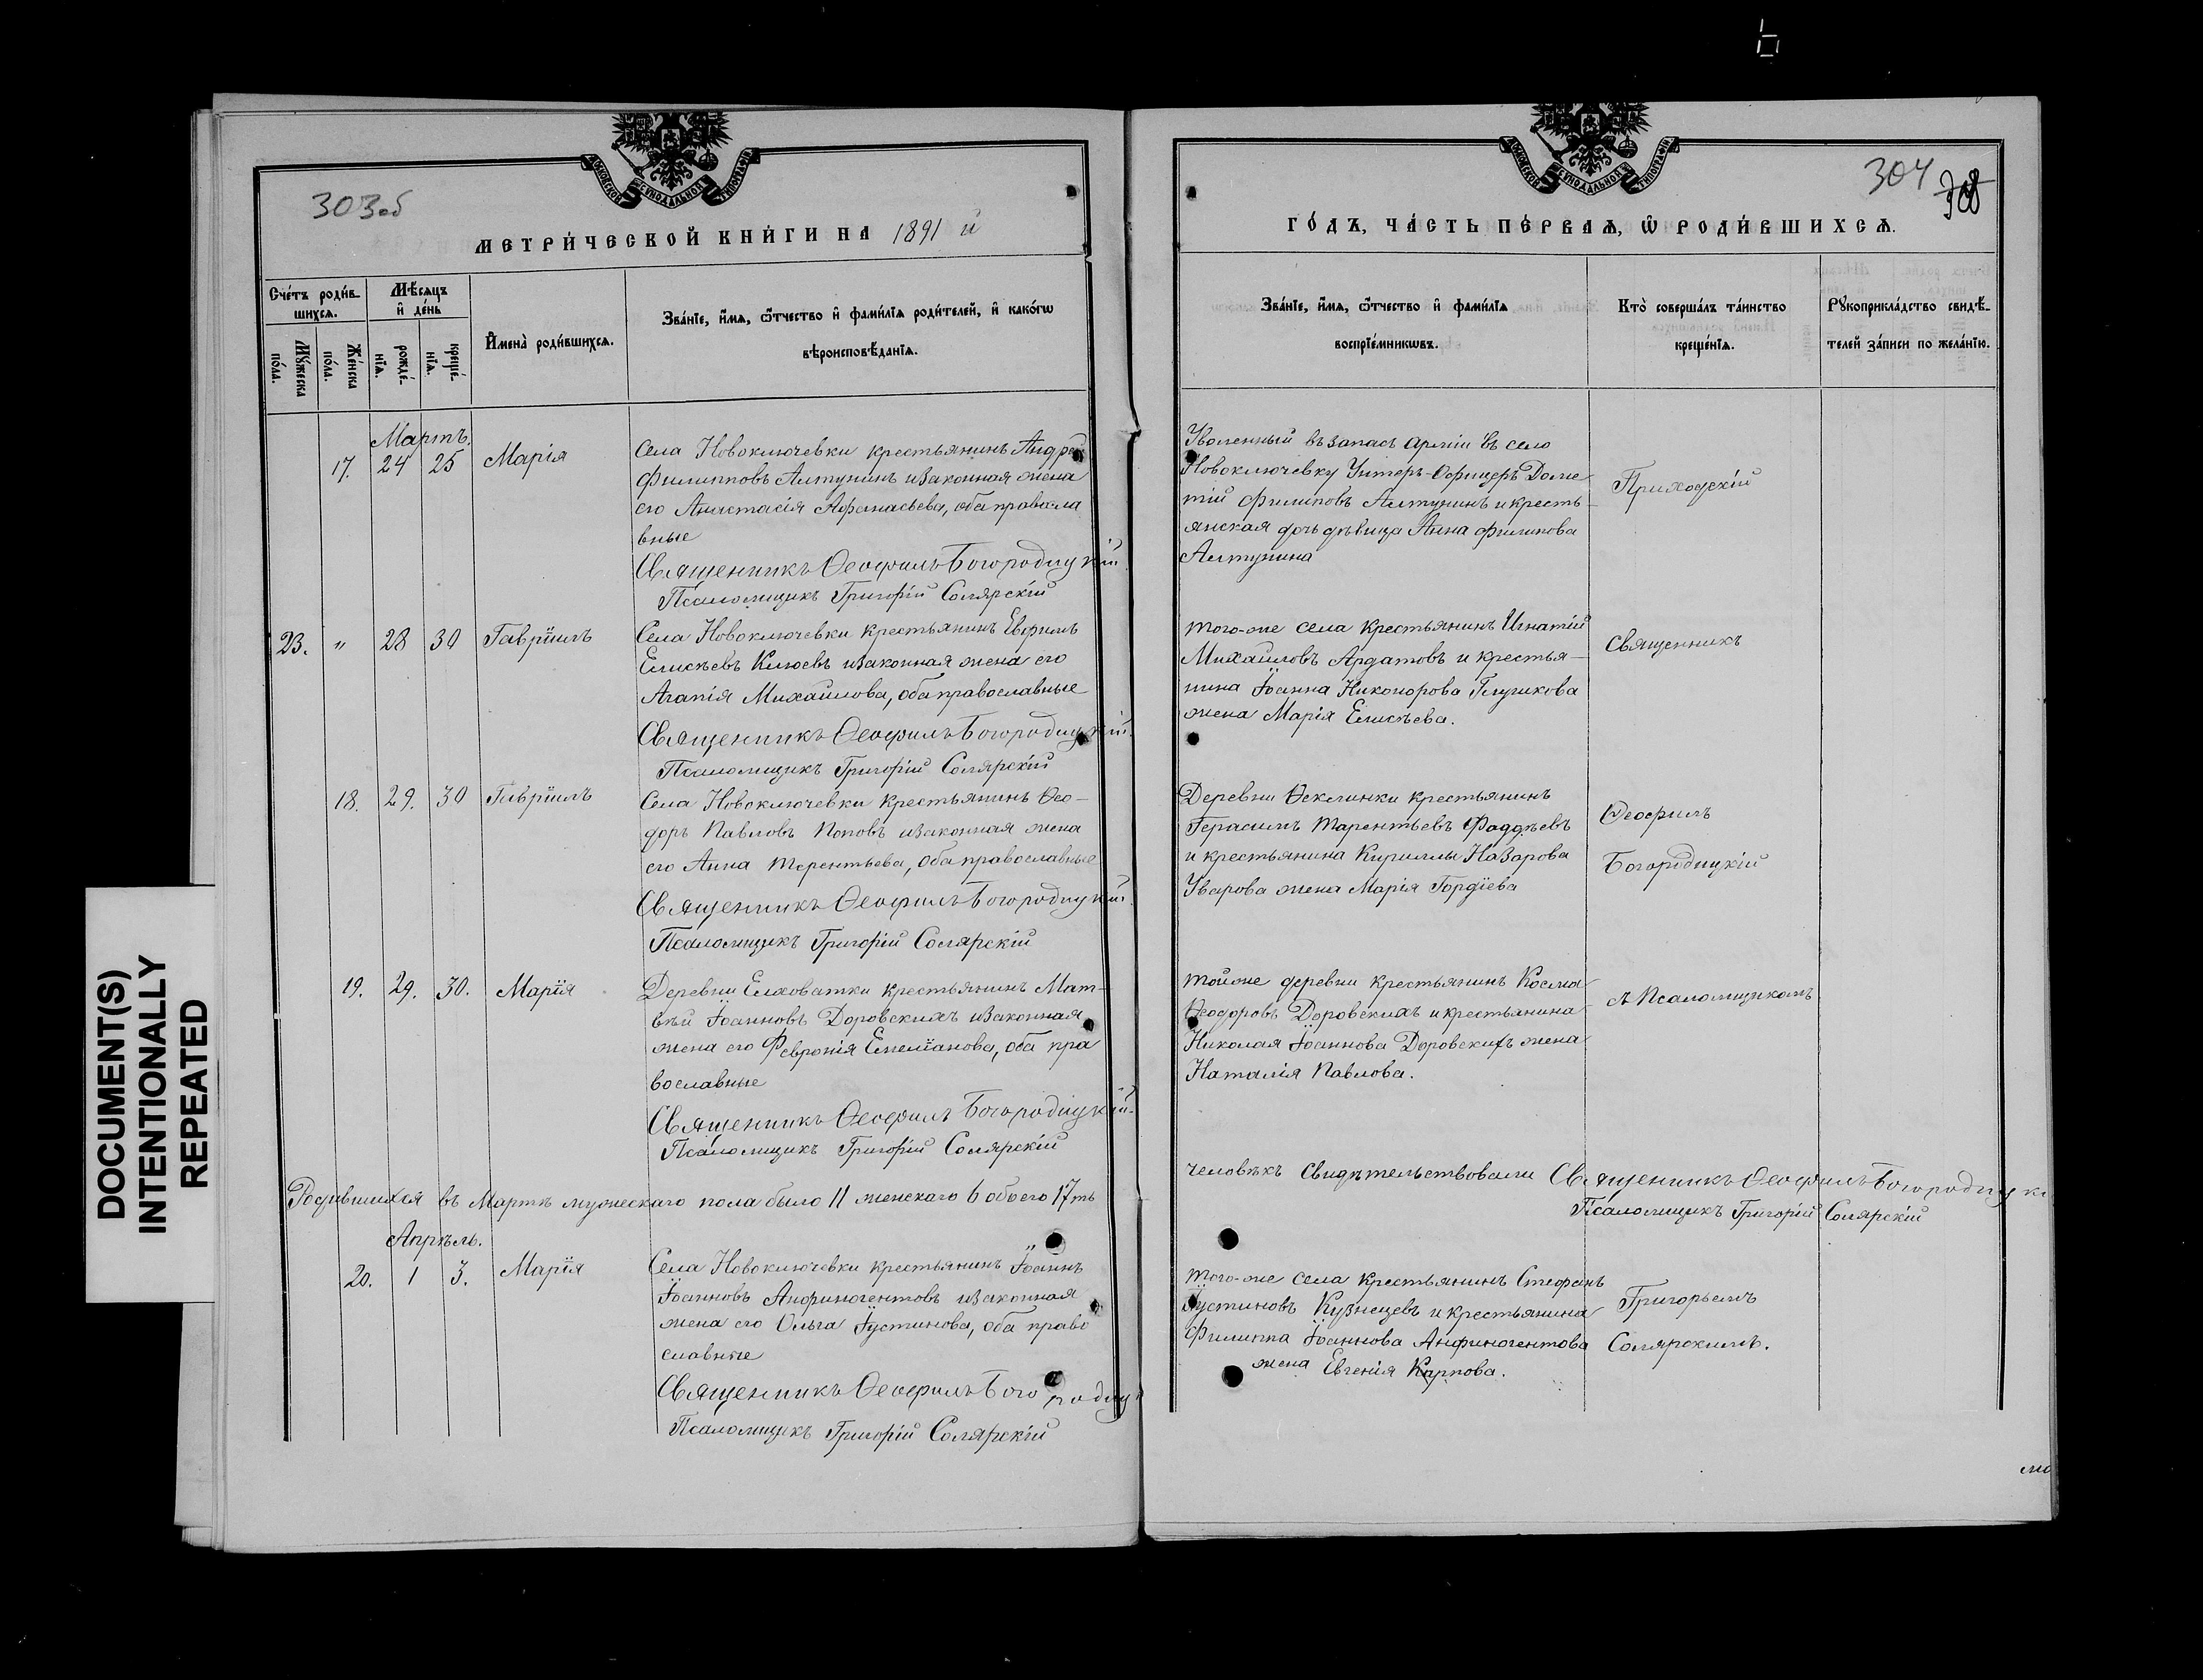 DOCUMENT(S)
INTENTIONALLY
REPEATED
303об
МОСКОВСКОЙ СѴНОДАЛЬНОЙ ТИПОГРАФІИ
МЕТРИ́ЧЕСКОЙ КНИ́ГИ НА 1891 й
Сче́тъ роди́в-
шихсѧ.
Мѣ́сѧцъ
и҆ де́нь
Мꙋ́жеска
по́ла.
Же́нска
по́ла.
рожде́-
нїѧ.
креще́-
нїѧ.
И҆мена̀ роди́вшихсѧ.
Зва́нїе, и҆́мѧ, ѻ҆́тчество и҆ фами́лїѧ роди́телей, и҆ како́гѡ
вѣроисповѣ́данїѧ.
Мартъ.
17. 24 25 Марія
Села Новоключевки крестьянинъ Андрей
Филипповъ Алтунинъ и законная жена
его Анастасія Афанасьева, оба правосла
вные
Священникъ Ѳеофилъ Богородицкій
Псаломщикъ Григорій Солярскій
23. " 28 30 Гавріилъ
Села Новоключевки крестьянинъ Евфимъ
Елисѣевъ Клюевъ и законная жена его
Агапія Михайлова, оба православные
Священникъ Ѳеофилъ Богородицкій.
Псаломщикъ Григорій Солярскій
18. 29. 30 Гавріилъ
Села Новоключевки крестьянинъ Ѳео-
доръ Павловъ Поповъ и законная жена
его Анна Терентьева, оба православные
Священникъ Ѳеофилъ Богородицкій.
Псаломщикъ Григорій Солярскій
19. 29. 30. Марія
Деревни Елховатки крестьянинъ Мат-
вѣй Іоанновъ Доровскихъ и законная
жена его Февронія Емеліанова, оба пра
вославные
Священникъ Ѳеофилъ Богородицкій.
Псаломщикъ Григорій Солярскій
Родившихся въ Мартѣ мужескаго пола было 11 женскаго 6 обоего 17ть
Апрѣль.
20. 1 3. Марія
Села Новоключевки крестьянинъ Іоаннъ
Іоанновъ Анфиногентовъ и законная
жена его Ольга Іустинова, оба право
славные
Священникъ Ѳеофилъ Богородиц
Псаломщикъ Григорій Солярскій
304
МОСКОВСКОЙ СѴНОДАЛЬНОЙ ТИПОГРАФІИ
ГО́ДЪ, ЧА́СТЬ ПЕ́РВАѦ, Ѡ҆ РОДИ́ВШИХСѦ.
Зва́нїе, и҆́мѧ, ѻ҆́тчество и҆ фами́лїѧ
воспрїе́мникѡвъ.
Кто̀ соверша́лъ та́инство
креще́нїѧ.
Рꙋкоприкла́дство свидѣ́-
телей за́писи по жела́нїю.
Уволенный въ запасъ арміи въ село
Новоключевку Унтеръ-Офицеръ Доме
тій Филиповъ Алтунинъ и кресть-
янская дочь дѣвица Анна Филипова
Алтунина
Приходскій
того-же села крестьянинъ Игнатій
Михайловъ Ардатовъ и крестья-
нина Іоанна Никонорова Глушкова
жена Марія Елисѣева.
Священникъ
Деревни Ѳеклинки крестьянинъ
Герасимъ Тарентьевъ Фаддѣевъ
и крестьянина Кириллы Назарова
Уварова жена Марія Гордіева
Ѳеофилъ
Богородицкій
той же деревни крестьянинъ Косма
Ѳеодоровъ Доровскихъ и крестьянина
Николая Іоаннова Доровскихъ жена
Наталія Павлова.
съ Псаломщикомъ
человѣкъ Свидѣтельствовали Священникъ Ѳеофилъ Богородицкі
Псаломщикъ Григорій Солярскій
того-же села крестьянинъ Стефанъ
Іустиновъ Кузнецевъ и крестьянина
Филиппа Іоаннова Анфиногентова
жена Евгенія Карпова.
Григорьемъ
Солярскимъ.